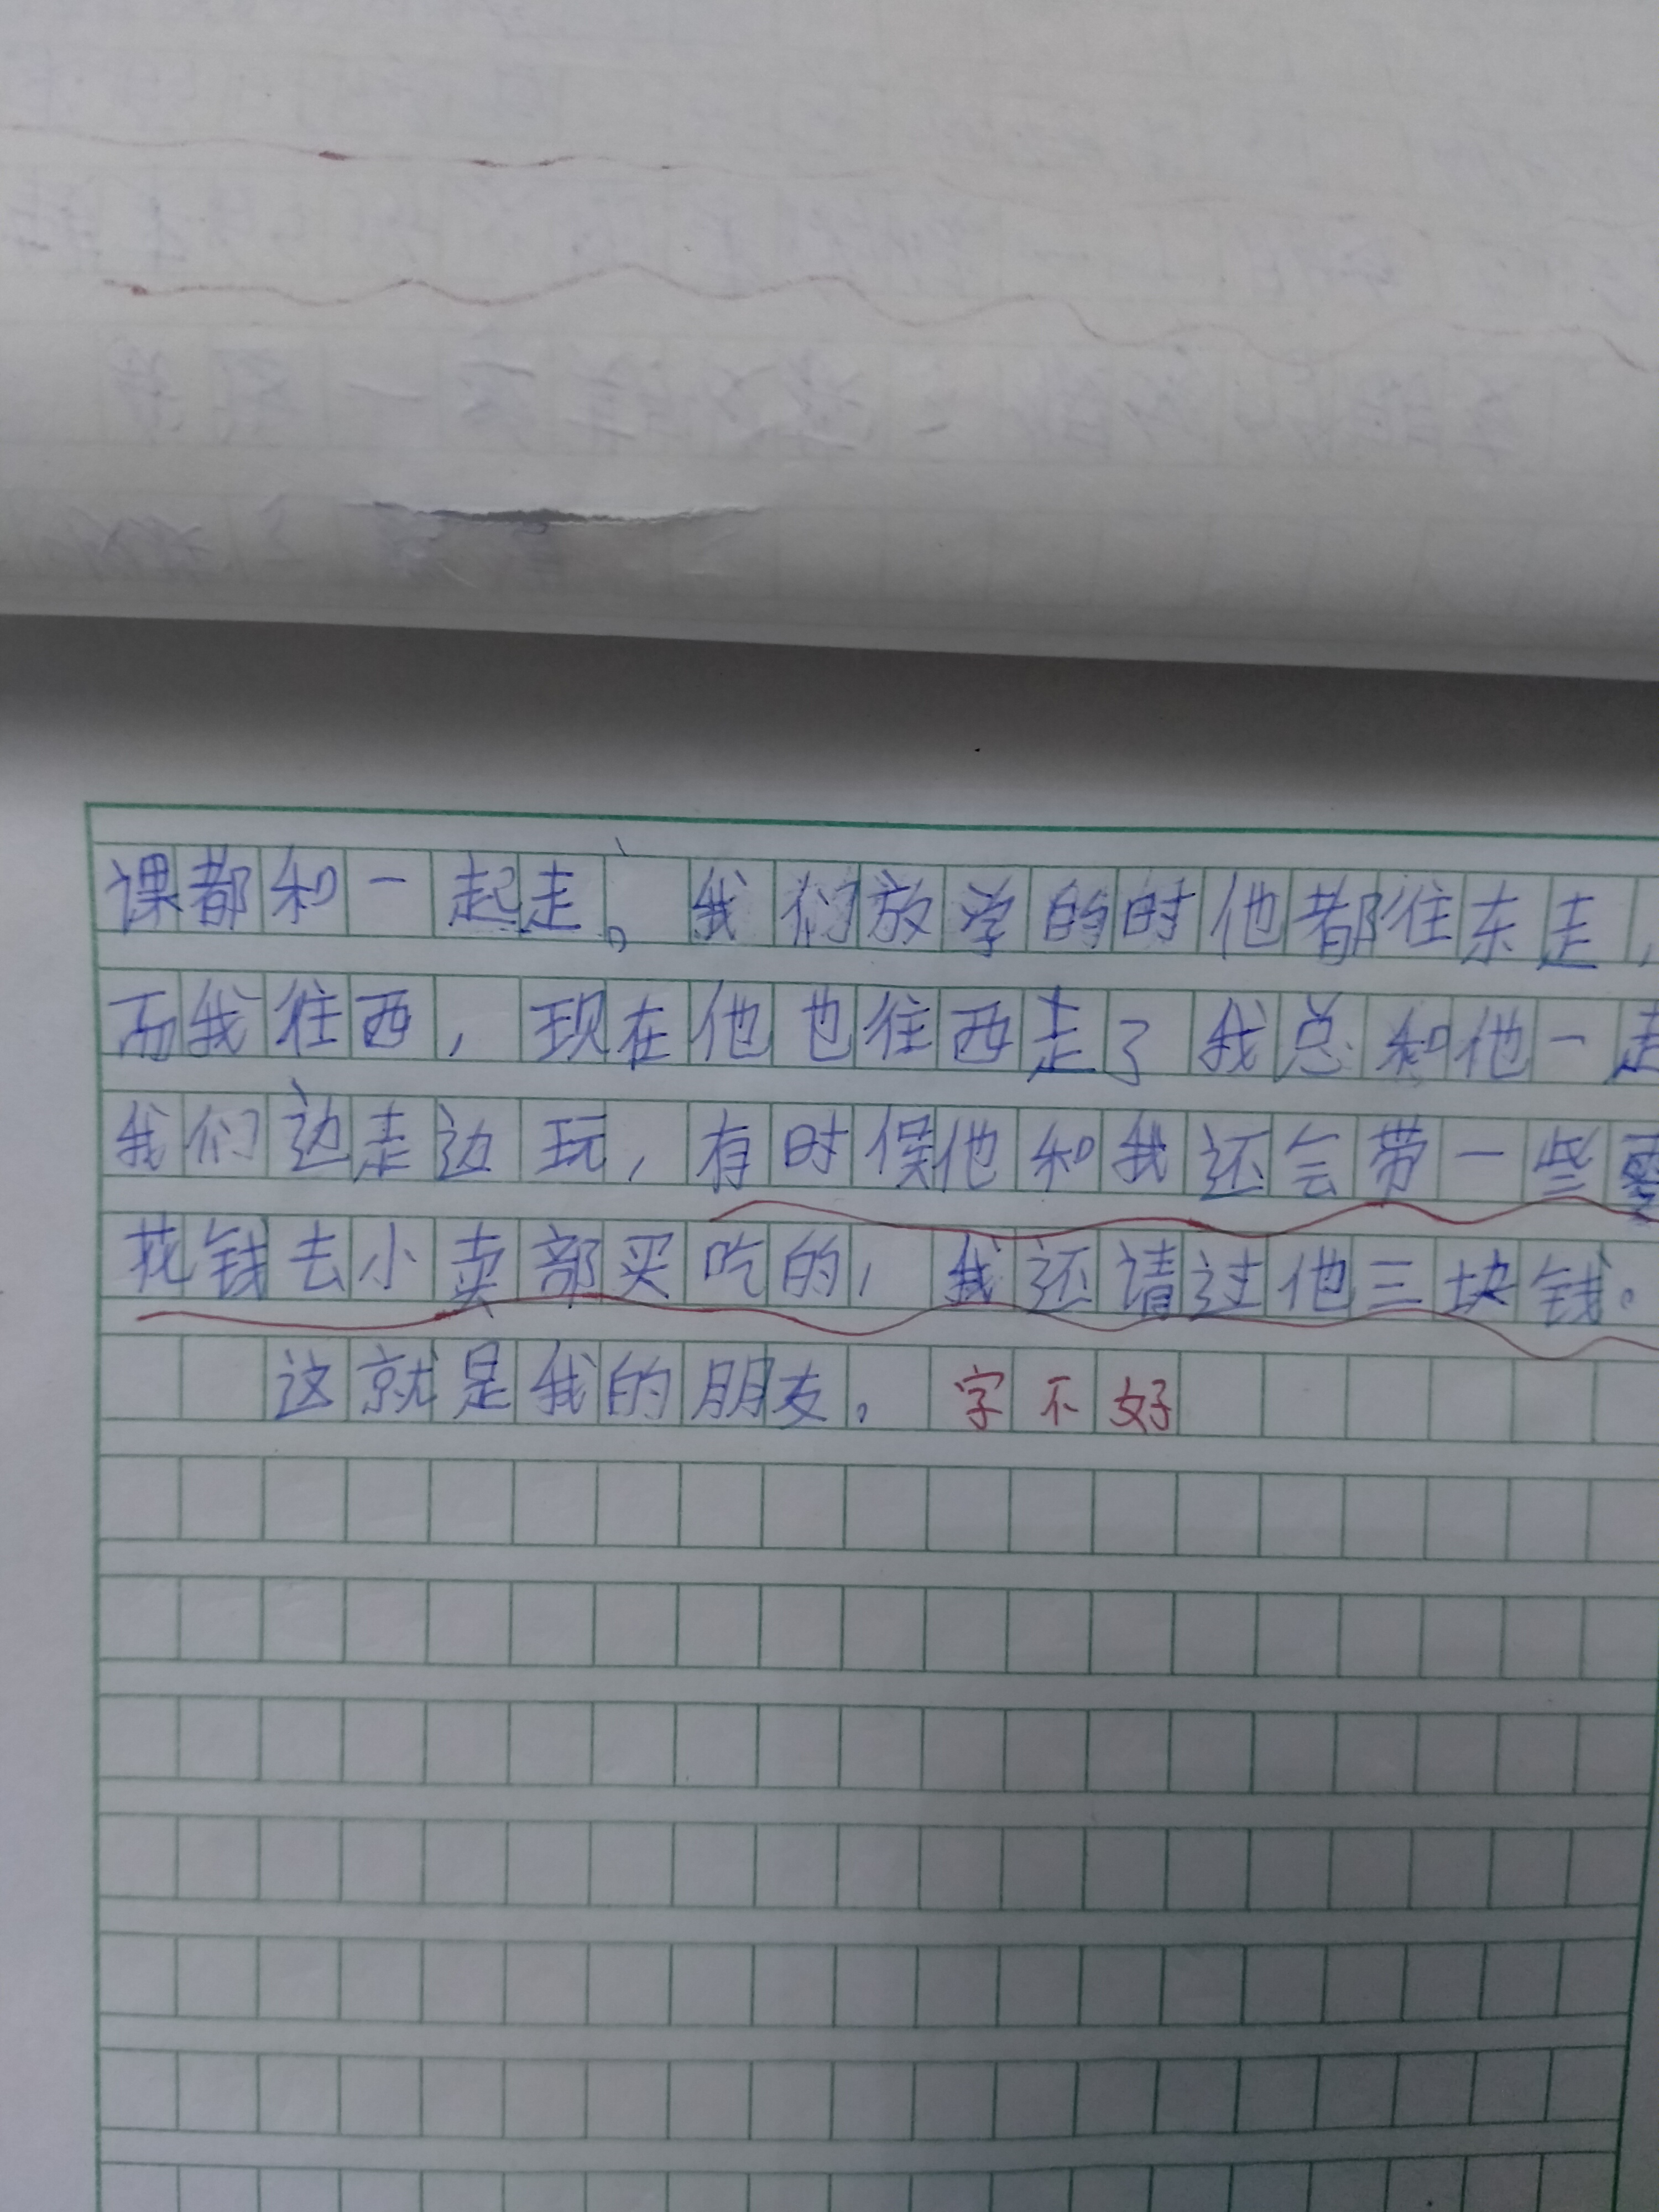 课都和一起走。我们放学的时他都往东走，
而我往西，现在他也往西走了我总和他一走
我们边走边玩，有时候他和我还会带一些零
花钱去小卖部买吃的，我还请过他三块钱。
这就是我的朋友。字不好